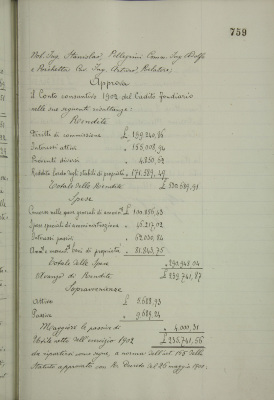 759
Nob. Ing. Stanislao, Pellegrini Comm. Ing. Adolfo
e Porchetta Cav. Ing. Relatore;
Approva
Il Conto consuntivo 1902 del Credito Fondiario
nelle sue seguenti risultanze:
Rendite
Diritti di commissione £ 199240,16
Interessi attivi 155008,94
Proventi diversi 4850,62
Reddito lordo negli stabili di proprietà 171589,49
Totale delle Rendite £ 530689,21
Spese
Concorso nelle spese generali di
Spese speciali di amministrazione 45217,02
Interessi passivi 62030,84
di proprietà 81843,75
Totale delle Spese 290948,04
Avanzo di Rendite £ 239741,17
Sopravvenienze
Attive £ 5688,93
Passive 9689,24
Maggiori le passive di 4000,31
Utile netto dell'esercizio 1902 £ 235741,56
da ripartirsi come segue, a norma dell'art. 165 dello
Statuto approvato con R. Decreto del 26 maggio